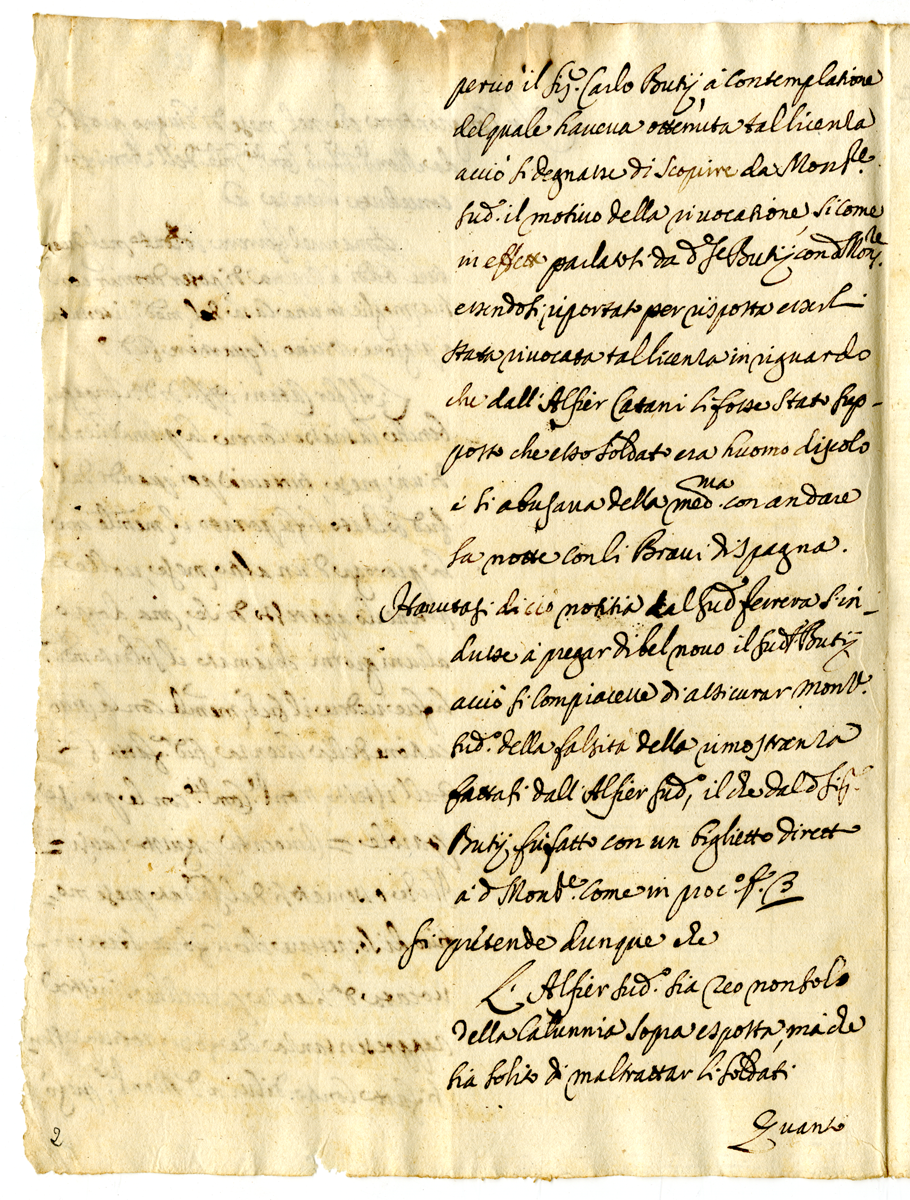 perciò il Sig.r Carlo Butij à contemplatione
del quale haveva ottenuta tal licenza
acciò si degnasse di scoprire da Mons.re
sud.o il motivo della rivocatione, si come
in effetto parlatosi da d.o Sr Butij con d.o Mons.re
essendosi riportato per risposta esserli
stata rivocata tal licenza in riguardo
che dall'Alfier Catani li fosse stato sup-
posto che esso soldato era huomo discolo
e si abusava della med.ma con andare
la notte con li Bravi di Spagna.
Havutasi di ciò notitia dal sud.o Ferrera s'in-
dusse à pregar di bel novo il sud.o Butij
acciò si compiacesse di assicurar Mons.re
sud.o della falsità della rimostranza
fattasi dall'Alfier sud.o, il che dal d.o Sig.r
Butij fù fatto con un biglietto diretto
à d.o Mons.re come in proc.o f. 3
Si pretende dunque che
L'Alfier sud.o sia reo non solo
della Calunnia sopra esposta, mà che
sia solito di maltrattar li soldati
Quanto
2